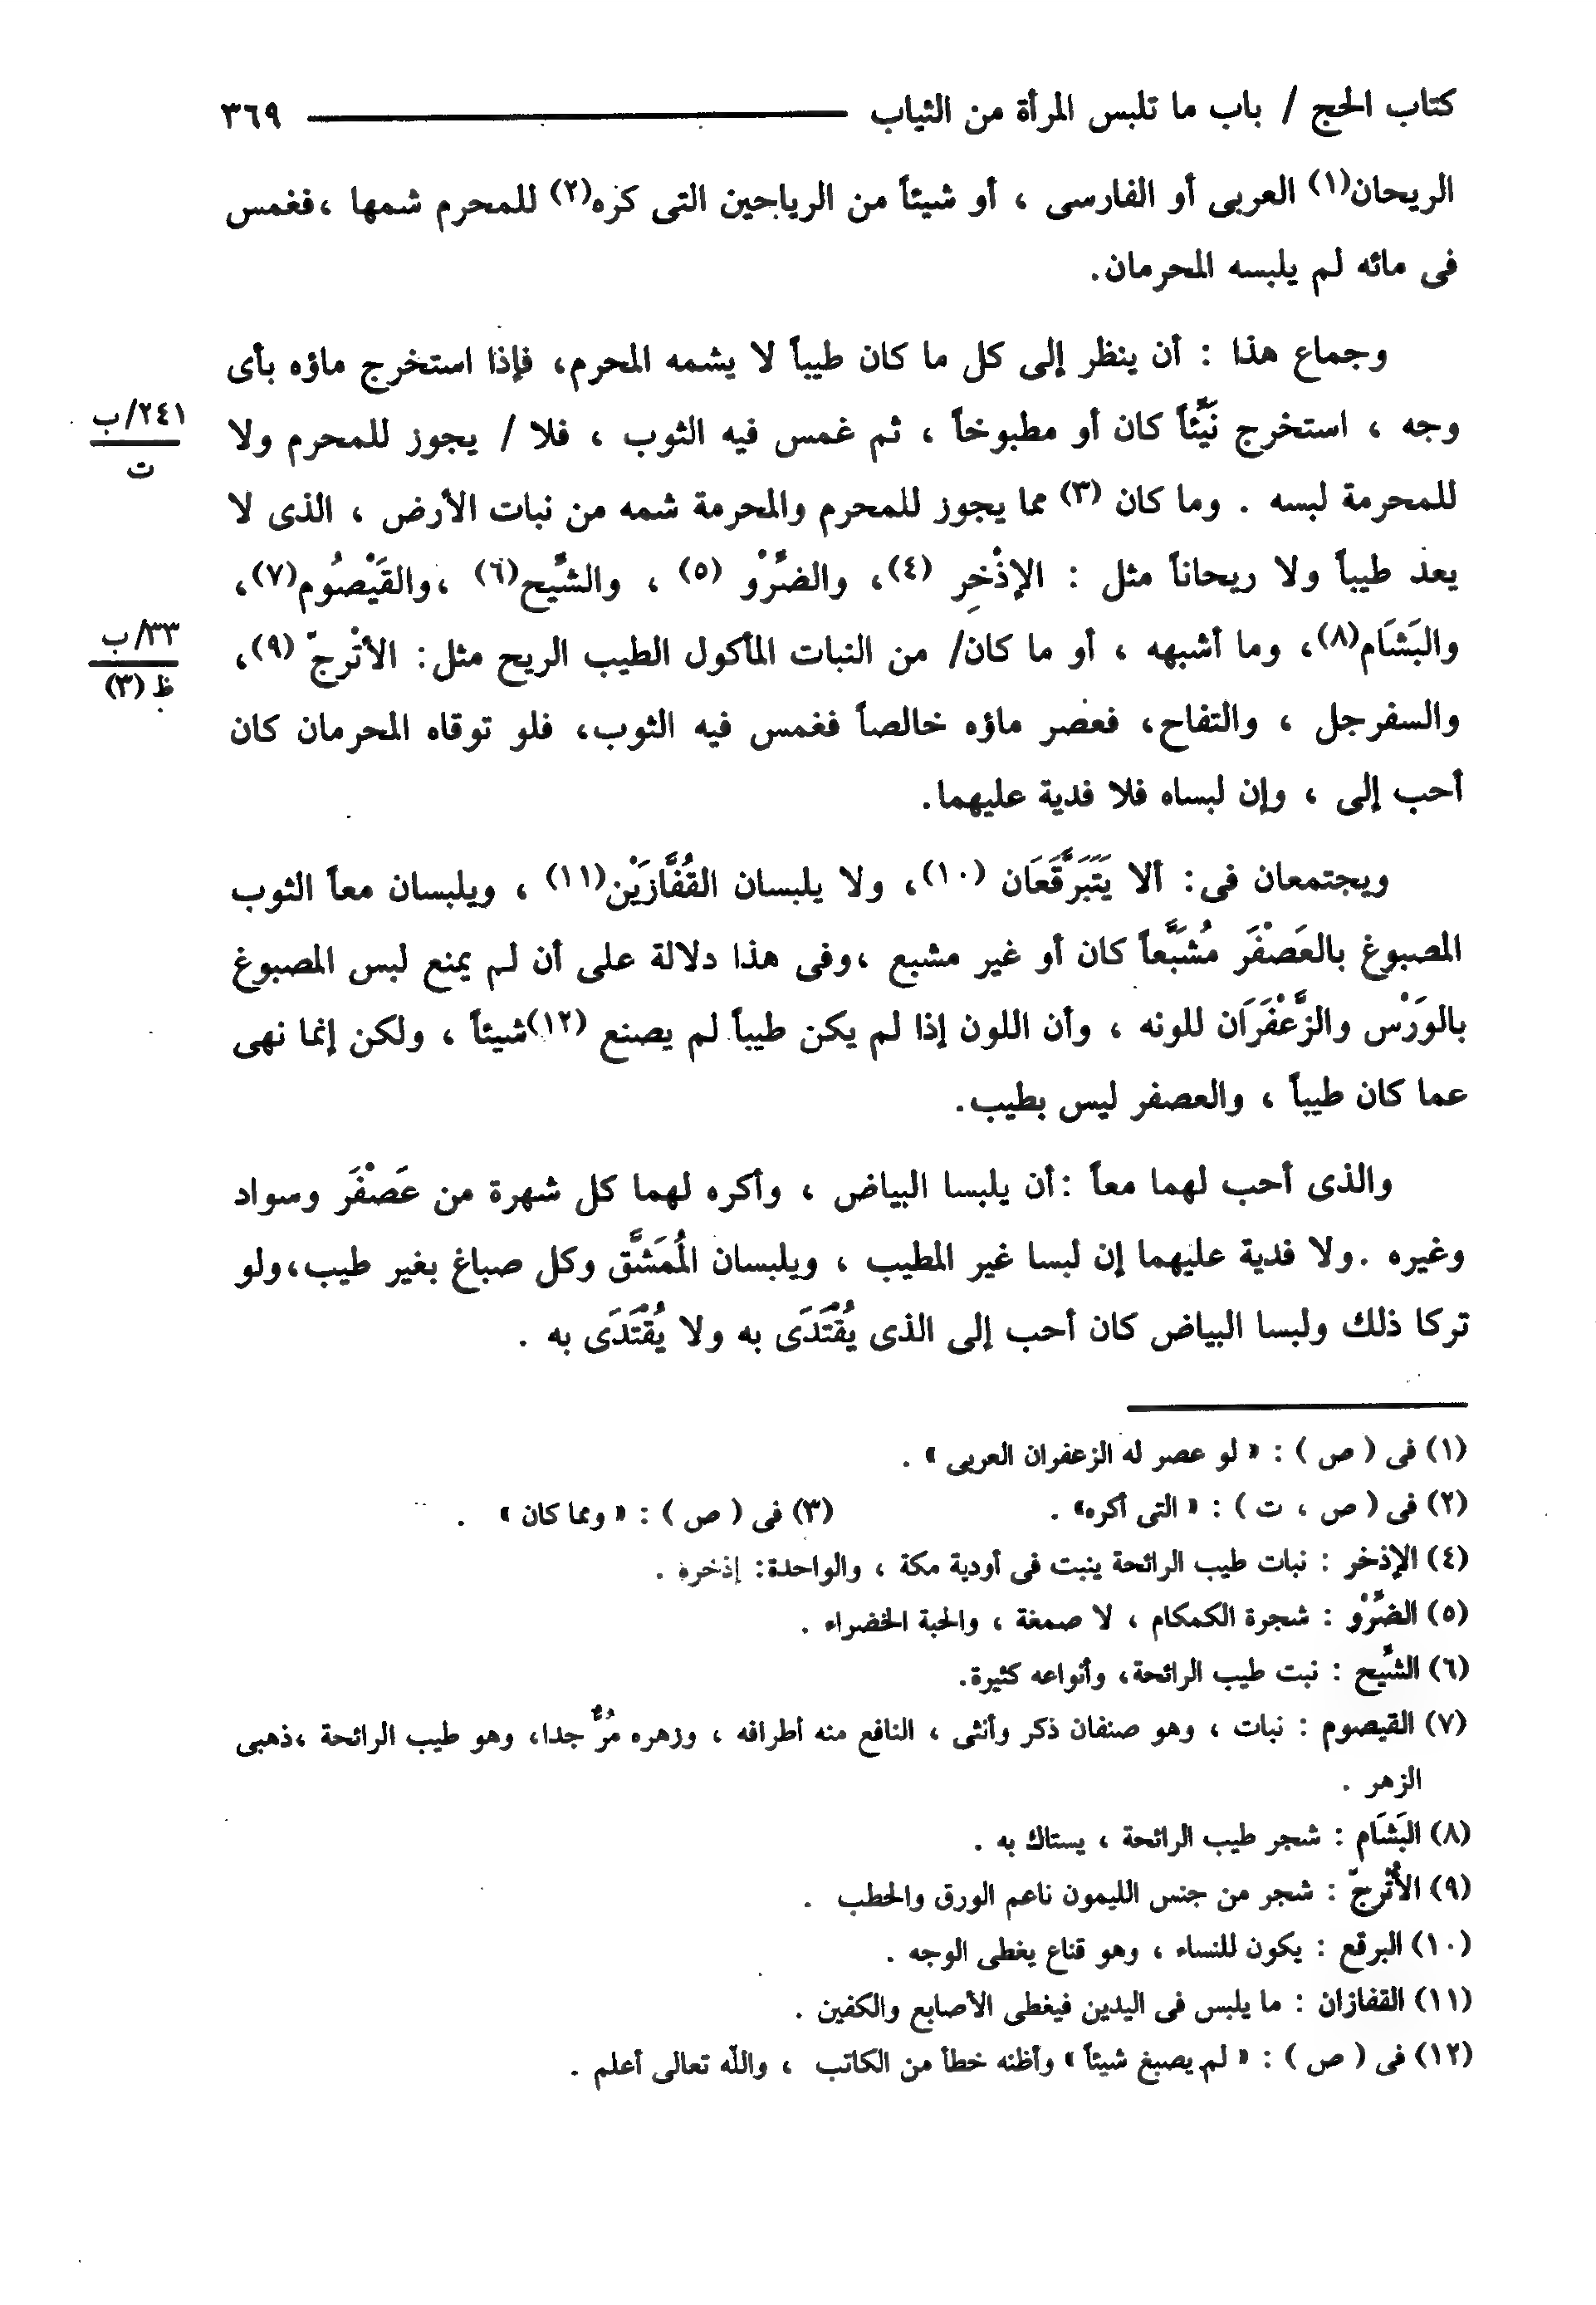 كتاب الحج / باب ما تلبس المرأة من الثياب ٣٦٩
الريحان(١) العربى أو الفارسى ، أو شيئاً من الرياحين التى كره(٢) للمحرم شمها ،فغمس
فى مائه لم يلبسه المحرمان.
وجماع هذا : أن ينظر إلى كل ما كان طيباً لا يشمه المحرم، فإذا استخرج ماؤه بأى
وجه ، استخرج نَيِّئاً كان أو مطبوخاً ، ثم غمس فيه الثوب ، فلا / يجوز للمحرم ولا
٢٤١/ب
ت
للمحرمة لبسه . وما كان (٣) مما يجوز للمحرم والمحرمة شمه من نبات الأرض ، الذى لا
يعد طيباً ولا ريحاناً مثل : الإذْخِر (٤)، والضِّرْو (٥) ، والشِّيح(٦) ،والقَيْصُوم(٧)،
والبَشَام(٨)، وما أشبهه ، أو ما كان/ من النبات المأكول الطيب الريح مثل: الأتْرجّ (٩)،
٣٣/ب
ظ (٣)
والسفرجل ، والتفاح، فعصر ماؤه خالصاً فغمس فيه الثوب، فلو توقاه المحرمان كان
أحب إلى ، وإن لبساه فلا فدية عليهما.
ويجتمعان فى: ألا يَتَبَرقَّعَان (١٠)، ولا يلبسان القُفَّازَيْن(١١) ، ويلبسان معاً الثوب
المصبوغ بالعَصْفَر مُشَبَّعاً كان أو غير مشبع ،وفى هذا دلالة على أن لم يمنع لبس المصبوغ
بالوَرْس والزَّعْفَرَان للونه ، وأن اللون إذا لم يكن طيباً لم يصنع (١٢)شيئاً ، ولكن إنما نهى
عما كان طيباً ، والعصفر ليس بطيب.
والذى أحب لهما معاً :أن يلبسا البياض ، وأكره لهما كل شهرة من عَصْفَر وسواد
وغيره .ولا فدية عليهما إن لبسا غير المطيب ، ويلبسان المُمَشَّق وكل صباغ بغير طيب،ولو
تركا ذلك ولبسا البياض كان أحب إلى الذى يُقْتَدَى به ولا يُقْتَدَى به .
(١) فى ( ص ) : « لو عصر له الزعفران العربى » .
(٢) فى ( ص ، ت ) : « التى أكره» . (٣) فى ( ص ) : « ومما كان » .
(٤) الإذخر : نبات طيب الرائحة ينبت فى أودية مكة ، والواحدة: إذخرة .
(٥) الضِّرْو : شجرة الكمكام ، لا صمغة ، والحبة الخضراء .
(٦) الشِّيح : نبت طيب الرائحة، وأنواعه كثيرة.
(٧) القيصوم : نبات ، وهو صنفان ذكر وأنثى ، النافع منه أطرافه ، وزهره مُرٌّ جدا، وهو طيب الرائحة ،ذهبى
الزهر .
(٨) البَشَام : شجر طيب الرائحة ، يستاك به .
(٩) الأُتْرجّ : شجر من جنس الليمون ناعم الورق والحطب .
(١٠) البرقع : يكون للنساء ، وهو قناع يغطى الوجه .
(١١) القفازان : ما يلبس فى اليدين فيغطى الأصابع والكفين .
(١٢) فى ( ص ) : « لم يصبغ شيئاً » وأظنه خطأ من الكاتب ، والله تعالى أعلم .